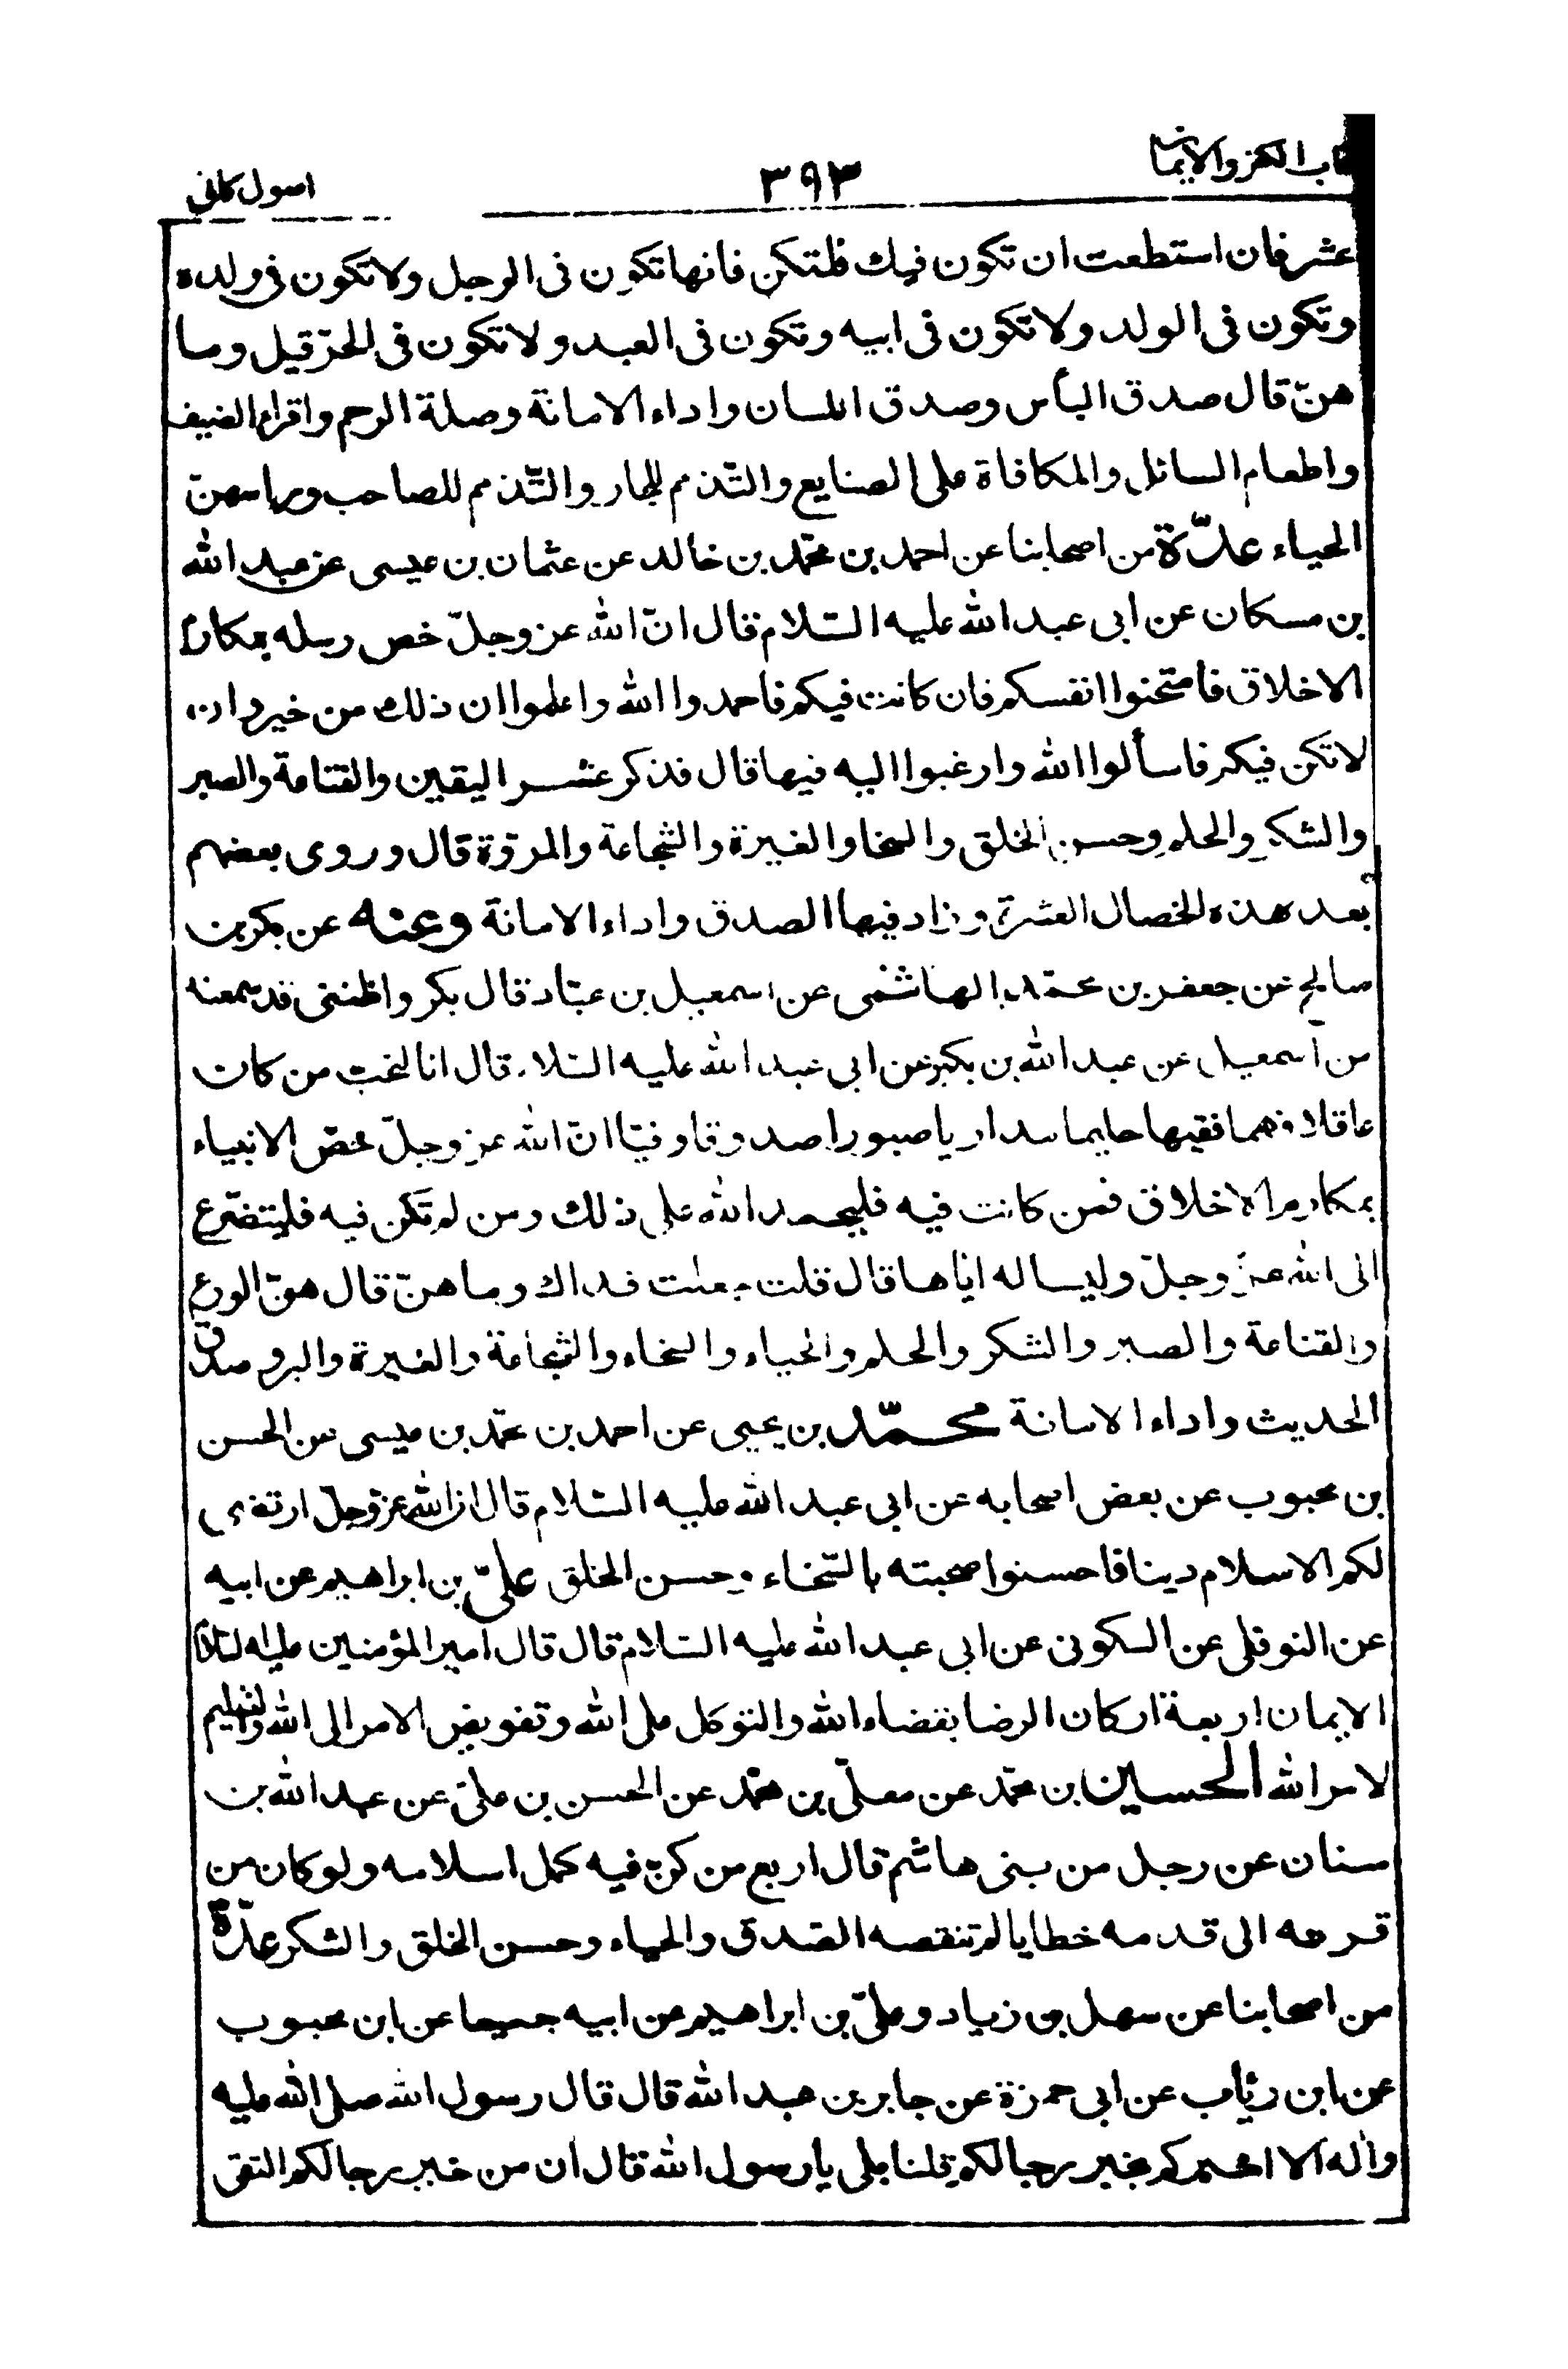 كتاب الكفر والايمان
٣٩٣
اصول كافى
عشر فان استطعت ان تكون فيك فلتكن فانها تكون فى الرجل ولا تكون فى ولده
وتكون فى الولد ولا تكون فى ابيه وتكون فى العبد ولا تكون فى الحرّ قيل وما
هنّ قال صدق البأس وصدق اللسان واداء الامانة وصلة الرحم واقراء الضيف
واطعام السائل والمكافاة على الصنايع والتّذمم للجار والتّذمم للصاحب وراسهنّ
الحياء عدّة من اصحابنا عن احمد بن محمّد بن خالد عن عثمان بن عيسى عن عبد الله
بن مسكان عن ابى عبد الله عليه السّلام قال انّ الله عز وجلّ خص رسله بمكارم
الاخلاق فامتحنوا انفسكم فان كانت فيكم فاحمدوا الله واعلموا ان ذلك من خير وان
لا تكن فيكم فاسألوا الله وارغبوا اليه فيها قال فذكر عشر اليقين والقناعة والصبر
والشكر والحلم وحسن الخلق والسخا والغيرة والشجاعة والمروّة قال وروى بعضهم
بعد هذه الخصال العشرة وزاد فيها الصدق واداء الامانة وعنه عن بكر بن
صالح عن جعفر بن محمّد الهاشمى عن اسمعيل بن عبّاد قال بكر واظننى قد سمعته
من اسمعيل عن عبد الله بن بكير عن ابى عبد الله عليه السّلام قال انا لنحب من كان
عاقلا فهما فقيها حليما مداريا صبورا صدوقا وفيّا انّ الله عز وجلّ خصّ الانبياء
بمكارم الاخلاق فمن كانت فيه فليحمد الله على ذلك ومن لم تكن فيه فليتضرّع
الى الله عزّ وجلّ وليساله ايّاها قال قلت جعلت فداك وما هنّ قال هنّ الورع
والقناعة والصبر والشكر والحلم والحياء والسخاء والشجاعة والغيرة والبر وصدق
الحديث واداء الامانة محمّد بن يحيى عن احمد بن محمّد بن عيسى عن الحسن
بن محبوب عن بعض اصحابه عن ابى عبد الله عليه السّلام قال ان الله عز وجلّ ارتضى
لكم الاسلام دينا فاحسنوا صحبته بالسّخاء وحسن الخلق علىّ بن ابراهيم عن ابيه
عن النوفلى عن السكونى عن ابى عبد الله عليه السّلام قال قال امير المؤمنين عليه السّلام
الايمان اربعة اركان الرضا بقضاء الله والتوكل على الله وتفويض الامر الى الله والتسليم
لامر الله الحسين بن محمّد عن معلّى بن محمّد عن الحسن بن علىّ عن عبد الله بن
سنان عن رجل من بنى هاشم قال اربع من كنّ فيه كمل اسلامه ولو كان من
قرنه الى قدمه خطايا لم تنقصه الصّدق والحياء وحسن الخلق والشكر عدّة
من اصحابنا عن سهل بن زياد وعلىّ بن ابراهيم عن ابيه جميعا عن ابن محبوب
عن ابن رئاب عن ابى حمزة عن جابر بن عبد الله قال قال رسول الله صلى الله عليه
واله الا اخبركم بخير رجالكم قلنا بلى يا رسول الله قال ان من خير رجالكم التقى